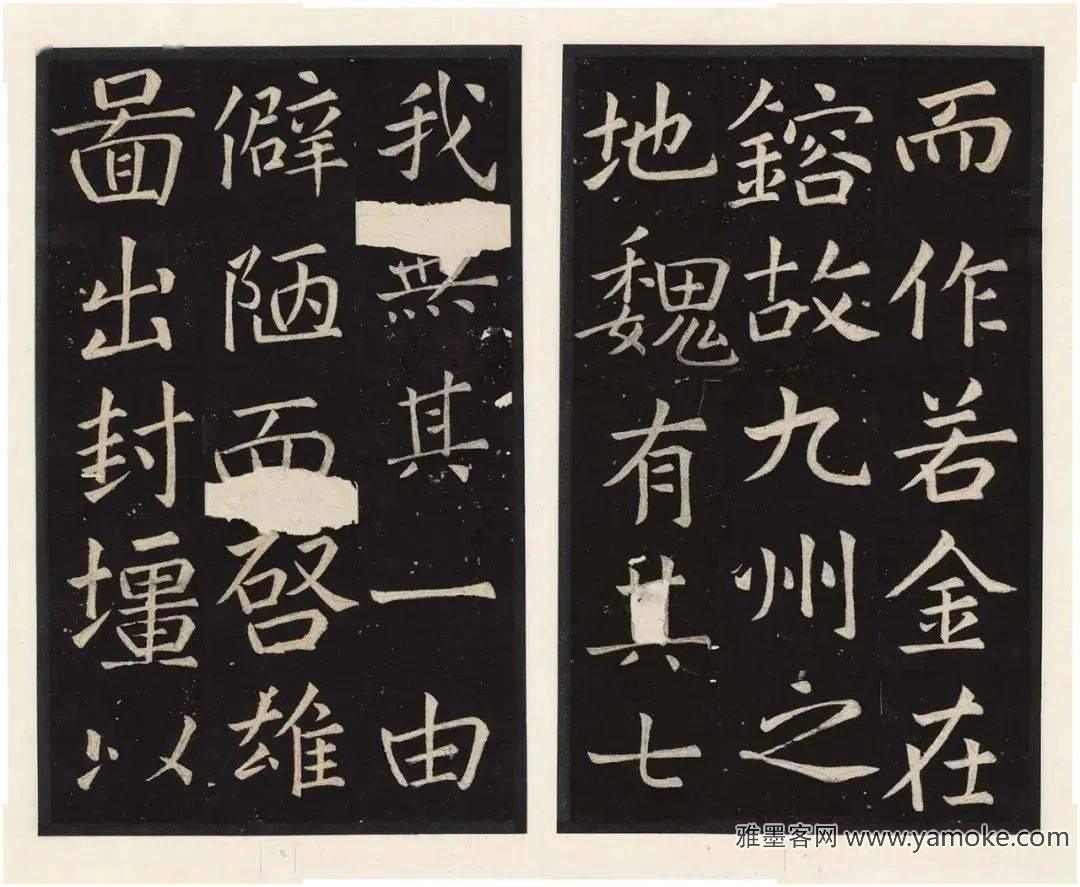 而作若金在
鎔故九州之
地魏有其七
我無其一由
僻陋而啓雄
啚出封壃以
雅墨客网 www.yamoke.com